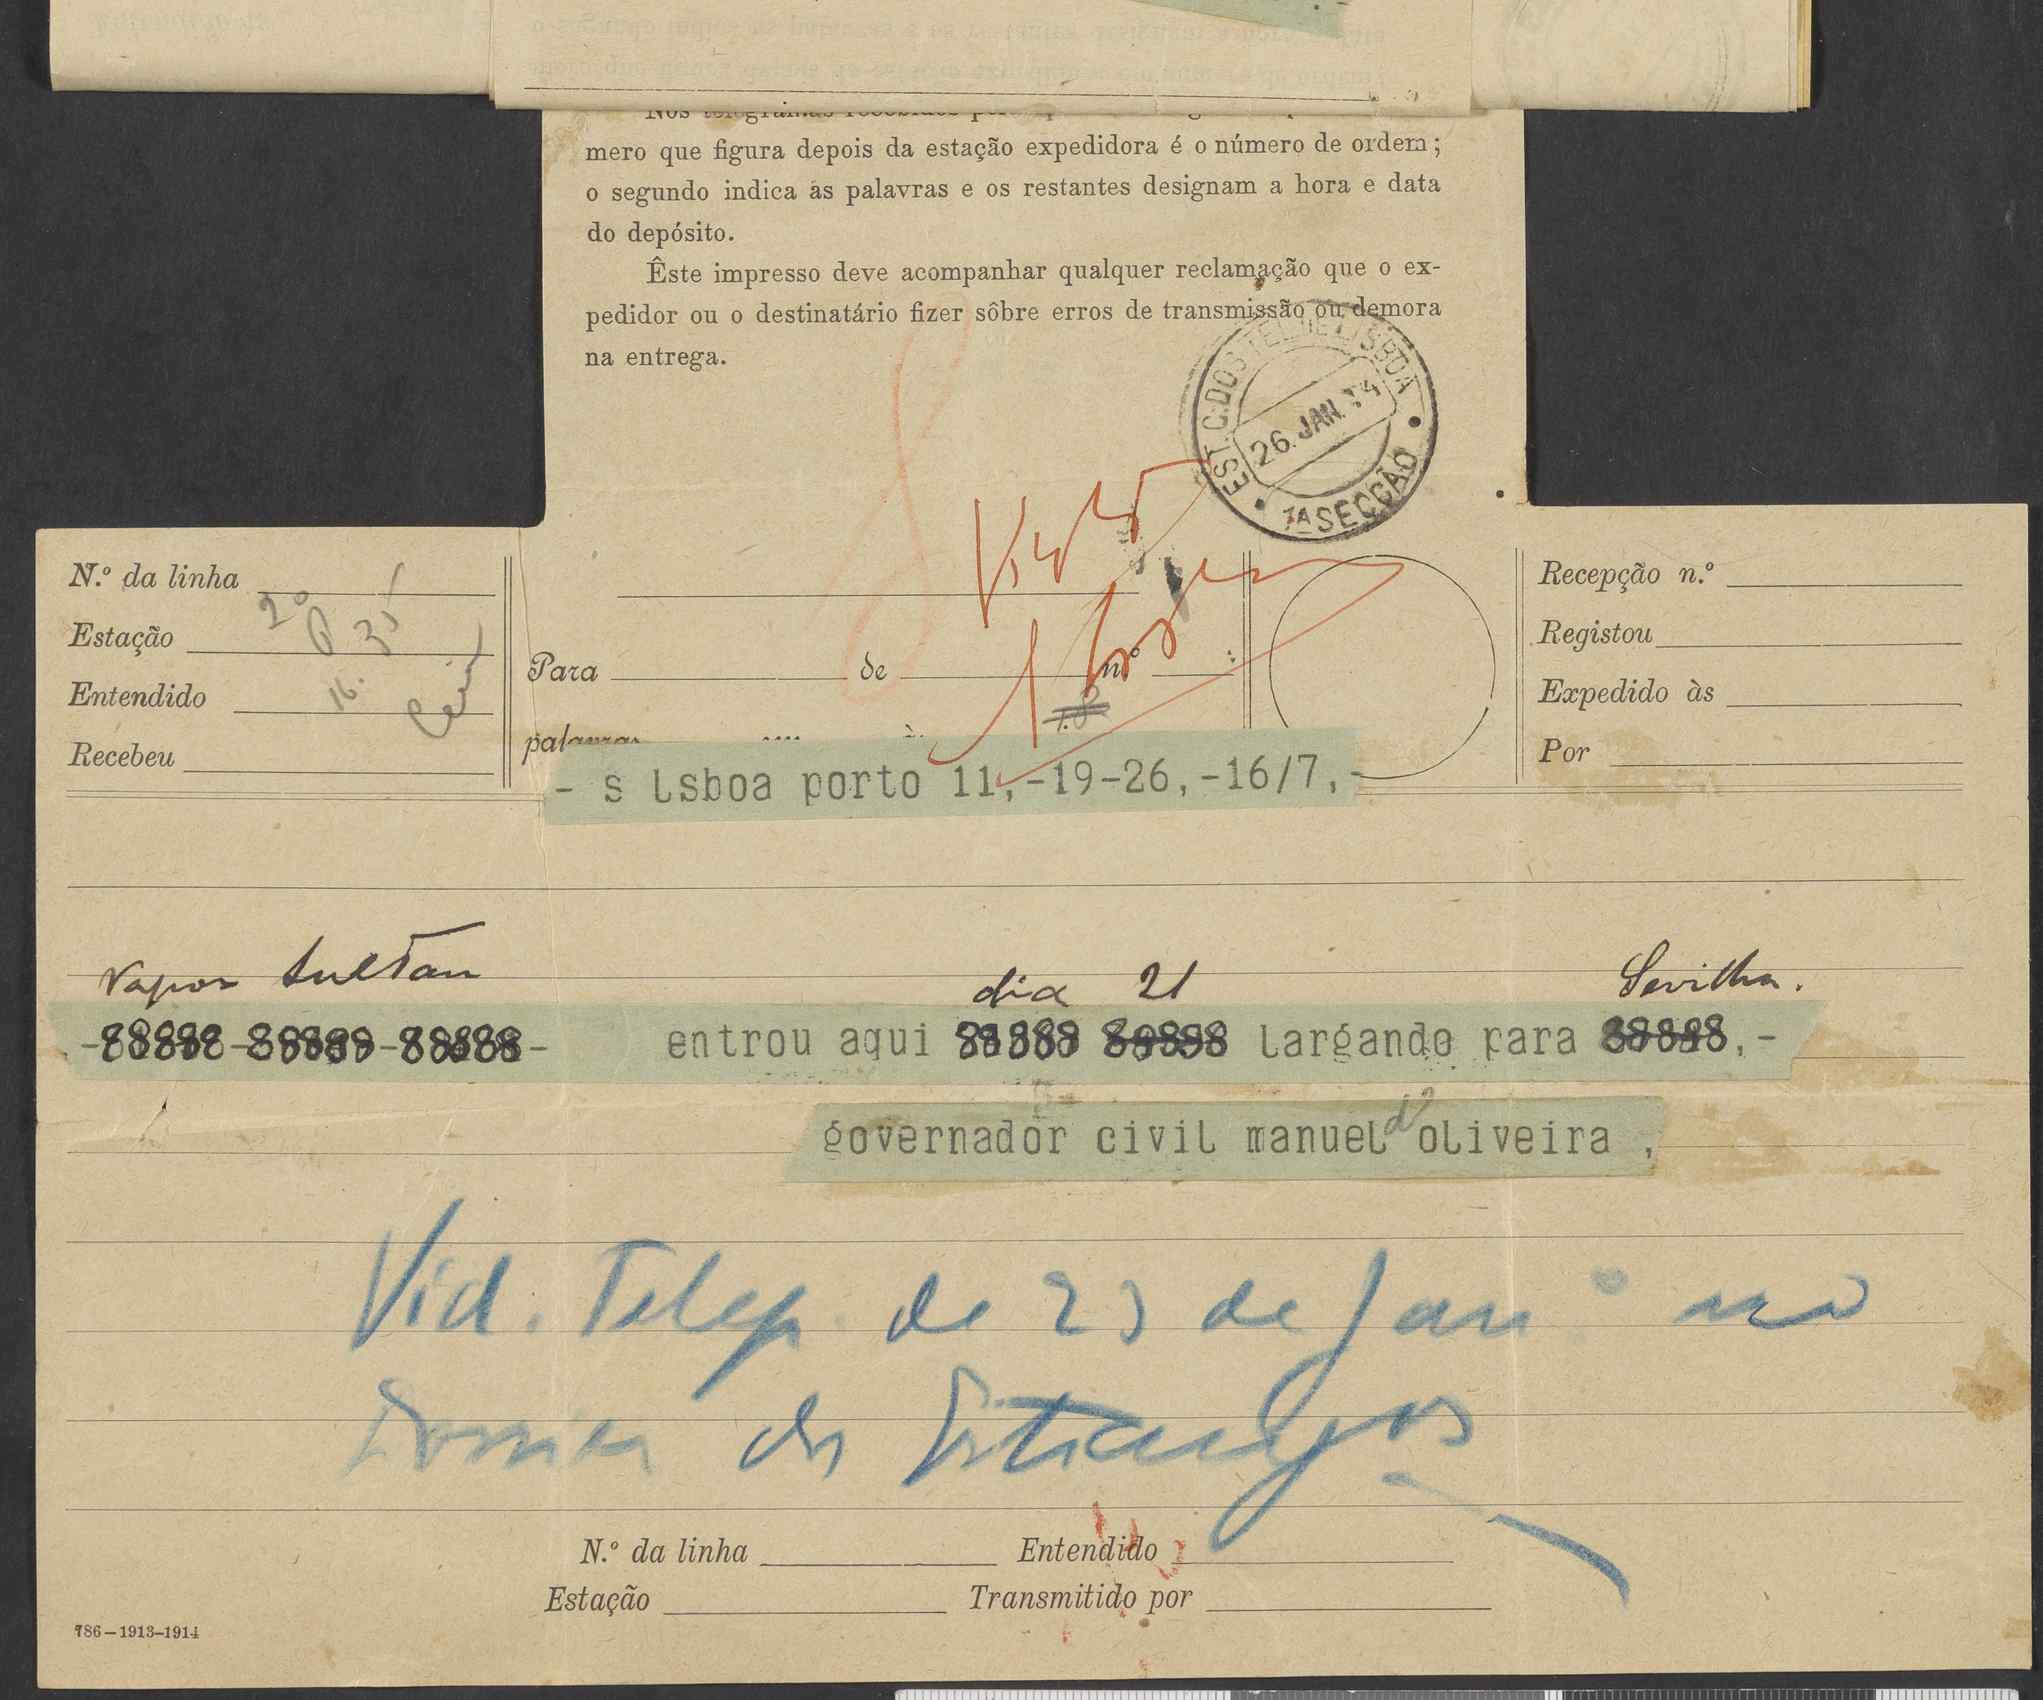 mero que figura depois da estação expedidora é o número de ordem;
o segundo indica as palavras e os restantes designam a hora e data
do depósito.
Êste impresso deve acompanhar qualquer reclamação que o ex-
pedidor ou o destinatário fizer sôbre erros de transmissão ou demora
na entrega.
EST. C. DOS TEL. DE LISBOA
26. JAN. 14
1A SECÇÃO
N.º da linha
2º
Estação
35
Entendido
16.
Recebeu
Para de nº :
palavras
Recepção n.º
Registou
Expedido às
Por
- s lsboa porto 11,-19-26,-16/7,-
Vapor Sultan dia 21 Sevilha.
entrou aqui largando para ,-
governador civil manuel d' oliveira ,
Vid. Teleg. de 23 de Janº no
Dossier dos Estrangros
N.º da linha Entendido
Estação Transmitido por
786–1913–1914